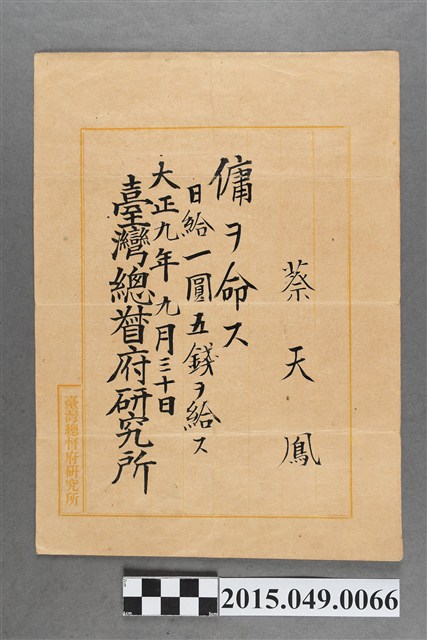 蔡天鳳
傭ヲ命ス
日給一圓五錢ヲ給ス
大正九年九月三十日
臺灣總督府研究所
臺灣總督府研究所
2015.049.0066